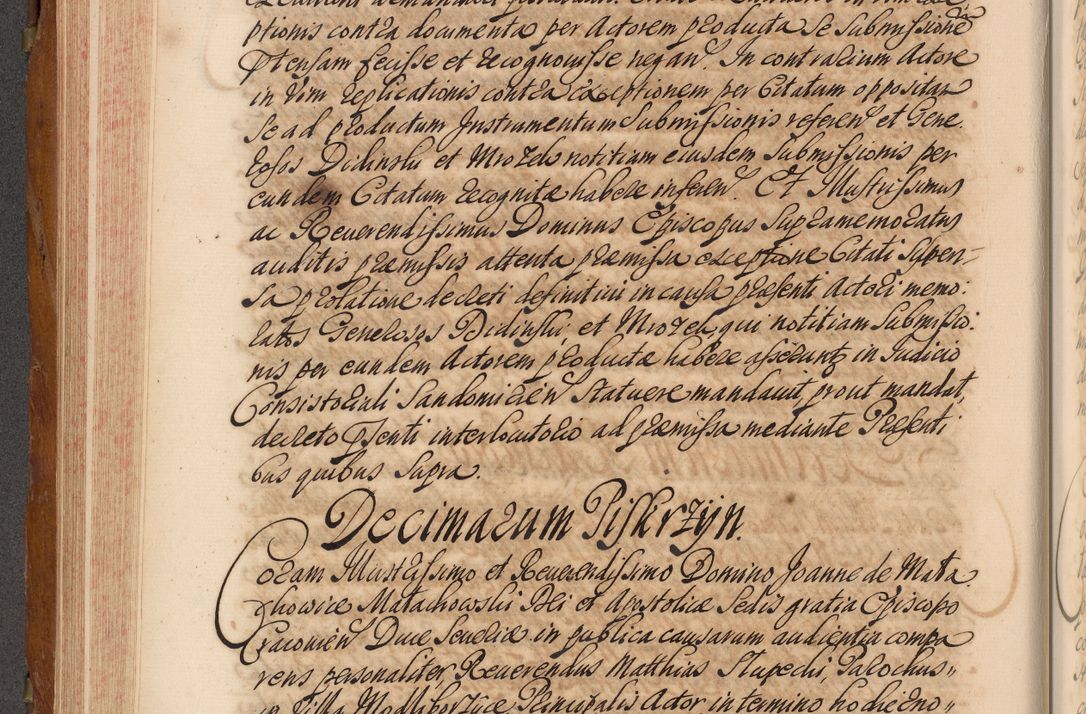 ptionis contra documenta per Actorem producta se Submissione
Ptensam fecisse et recognovisse negan. In contrarium Actore
in Vim replicationis contra exceptionem per Citatum oppositam
se ad productum Instrumentum Submissionis referen et Gene
rosos Didinski et Mrozek notitiam eiusdem Submissionis per
eundem Citatum recognitæ habere inferen. Et Illustrissimus
ac Reverendissimus Dominus Episcopus Supramemoratus
auditis præmissis attenta præmissa exceptione Citati Suspen=
sa prolatione decreti definitivi in causa præsenti Actori memo:
ratos Generosos Didinski, et Mrozek, qui notitiam Submissio:
nis per eundem Actorem productæ habere asserunt, in Iudicio
Consistoriali Sandomirien Statuere mandavit, prout mandat,
decreto Psenti interlocutorio ad præmissa mediante Præsenti
bus quibus Supra.
Decimarum Piskrzÿn.
Coram Illustrissimo et Reverendissimo Domino Joanne de Mała
chowice Małachowski Dei et Apostolicæ Sedis gratia Episcopo
Cracovien Duce Severiæ in publica causarum audientia compa
rens personaliter, Reverendus Matthias Słupecki, Parochus
in Villa Modliborzyce Principalis Actor in termino hodierno